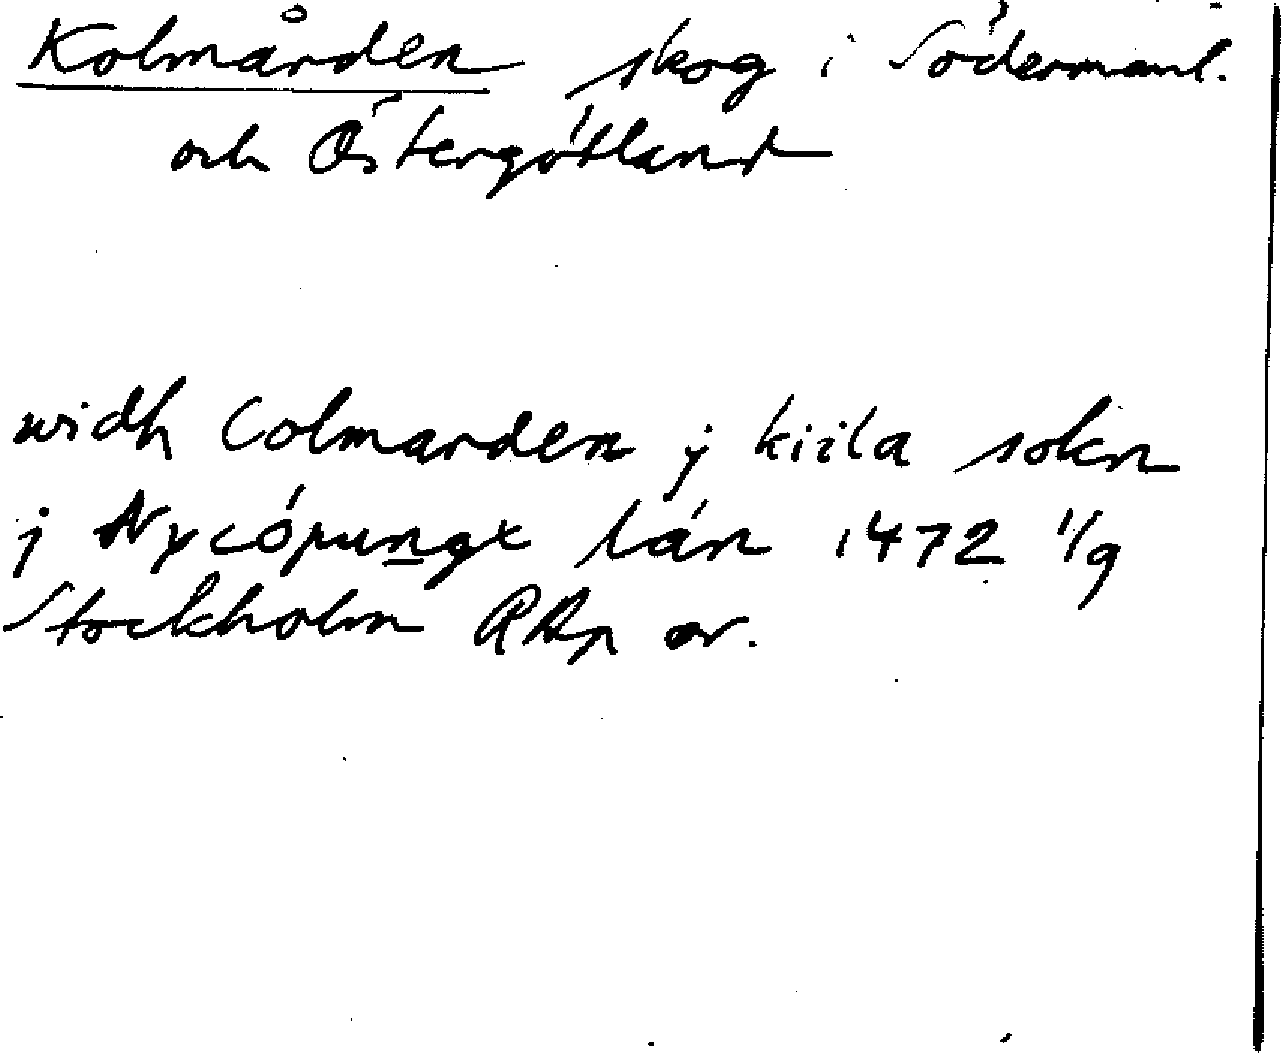 Kolmården skog i Södermanl.
och Östergötland
widh Colmarden j kiila sokn
j Nycöpungx län 1472 1/9
Stockholm RAp or.